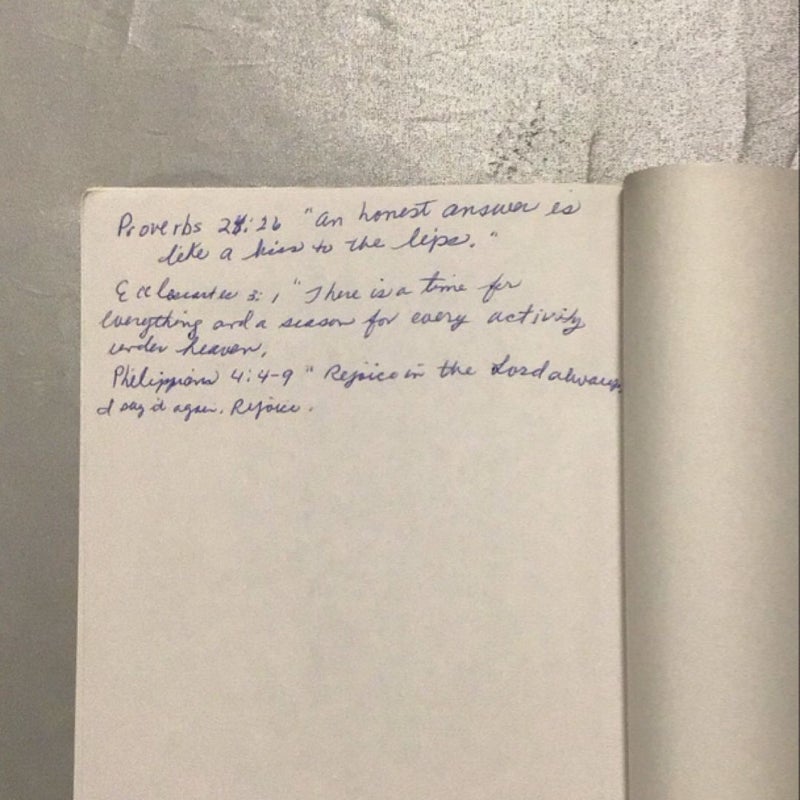 Proverbs 24:26 "An honest answer is
like a kiss to the lips."
3:1 "There is a time for
everything and a season for every activity
under heaven.
Philippians 4:4-9 "Rejoice in the Lord always,
I say it again. Rejoice.